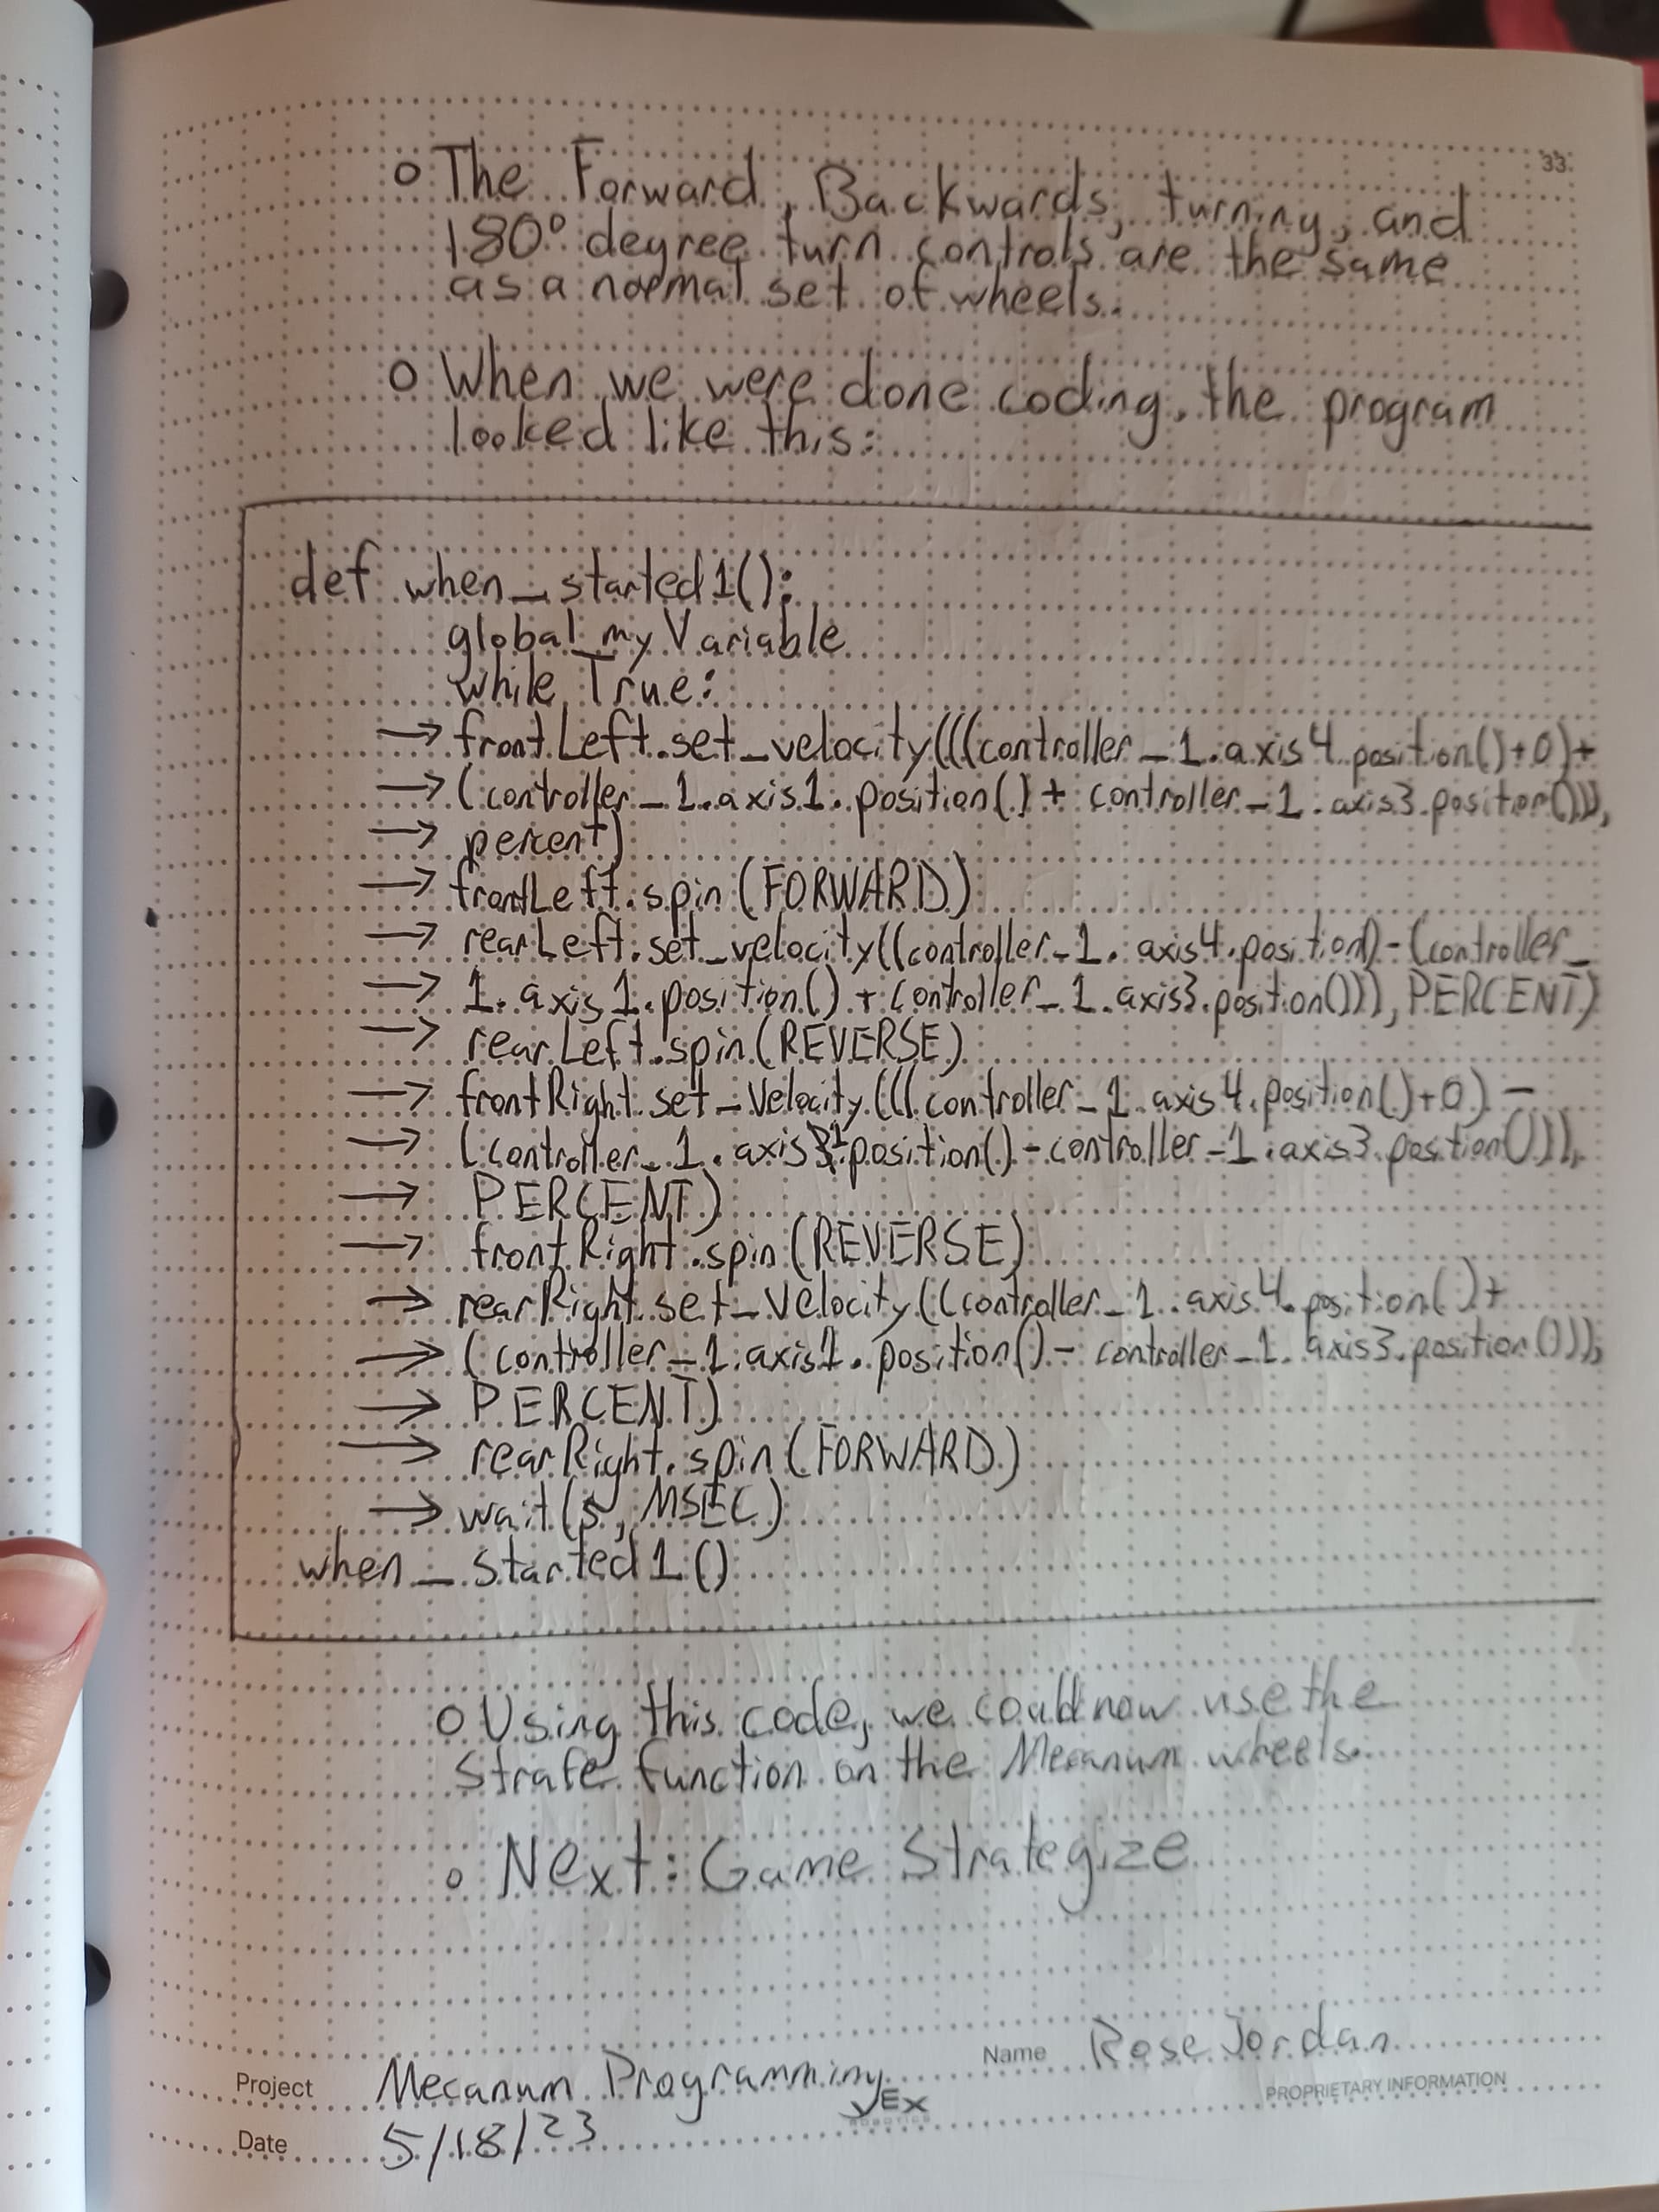 33
o The Forward, Backwards, turning, and
180° degree turn controls are the same
as a normal set of wheels.
o When we were done coding, the program
looked like this:
def when_started1():
global myVariable
while True:
→ frontLeft.set_velocity(((controller_1.axis4.position()+0)+
→ (controller_1.axis1.position() + controller_1.axis3.position())),
→ percent)
→ frontLeft.spin(FORWARD)
→ rearLeft.set_velocity((controller_1.axis4.position()-(controller_
→ 1.axis1.position() + controller_1.axis3.position())), PERCENT)
→ rearLeft.spin(REVERSE)
→ frontRight.set_Velocity(((controller_1.axis4.position()+0)-
→ (controller_1.axis1.position()-controller-1.axis3.position())),
→ PERCENT)
→ frontRight.spin(REVERSE)
→ rearRight.set_Velocity((controller_1.axis4.position()+
→ (controller_1.axis1.position()- controller_1.axis3.position())),
→ PERCENT)
→ rearRight.spin(FORWARD)
→ wait(5, MSEC)
when_started1()
o Using this code, we could now use the
strafe function on the Mecanum wheels.
o Next: Game Strategize
Name Rose Jordan
Project Mecanum Programming
PROPRIETARY INFORMATION
VEX
ROBOTICS
Date 5/18/23